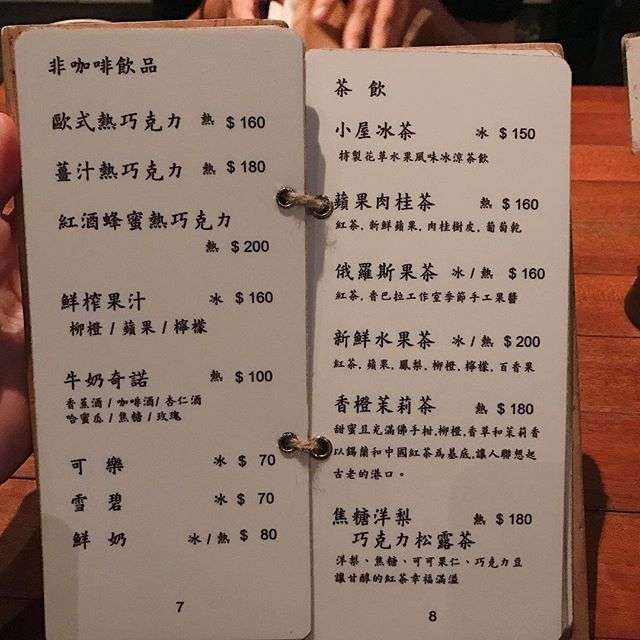 非咖啡飲品
歐式熱巧克力 熱 $160
薑汁熱巧克力 熱 $180
紅酒蜂蜜熱巧克力
熱 $200
鮮榨果汁 冰 $160
柳橙 / 蘋果 / 檸檬
牛奶奇諾 熱 $100
香蕉酒 / 咖啡酒 / 杏仁酒
哈蜜瓜 / 焦糖 / 玫瑰
可樂 冰 $ 70
雪碧 冰 $ 70
鮮奶 冰 / 熱 $ 80
7
茶飲
小屋冰茶 冰 $150
特製花草水果風味冰涼茶飲
蘋果肉桂茶 熱 $160
紅茶, 新鮮蘋果, 肉桂樹皮, 葡萄乾
俄羅斯果茶 冰 / 熱 $160
紅茶, 香巴拉工作室季節手工果醬
新鮮水果茶 冰 / 熱 $200
紅茶, 蘋果, 鳳梨, 柳橙, 檸檬, 百香果
香橙茉莉茶 熱 $180
甜蜜且充滿佛手柑,柳橙,香草和茉莉香
以錫蘭和中國紅茶為基底,讓人聯想起
古老的港口。
焦糖洋梨 熱 $180
巧克力松露茶
洋梨、焦糖、可可果仁、巧克力豆
讓甘醇的紅茶幸福滿溢
8